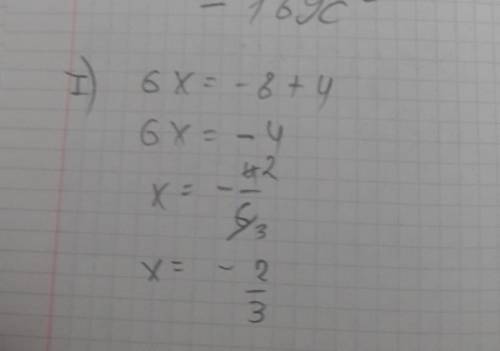 - 169c
I) 6x = -8 + 4
6x = -4
x = - 4/6 2/3
x = - 2/3